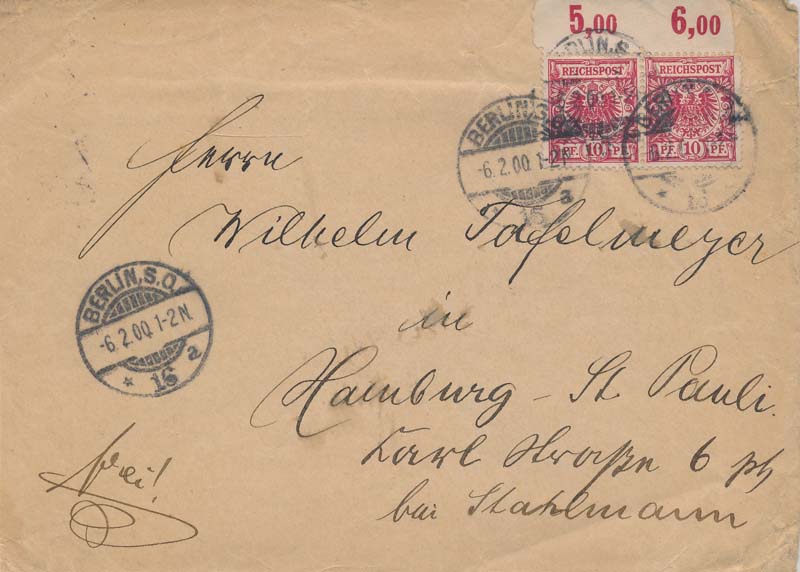 5,00 6,00
REICHSPOST REICHSPOST
PF. 10 PF. PF. 10 PF.
BERLIN, S.
BERLIN, S.
-6.2.00. 1-2N.
16 a
Herrn
Wilhelm Tafelmeyer
in
Hamburg - St Pauli.
Karl Straße 6 ph
bei Stahlmann
BERLIN, S.O.
-6.2.00. 1-2N.
* 16 a
frei!